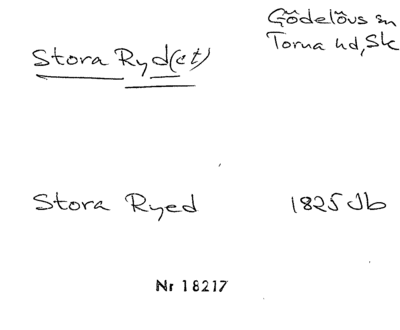 Stora Ryd(et)
Gödelövs sn
Torna hd, Sk
Stora Ryed 1825 Jb
Nr 18217